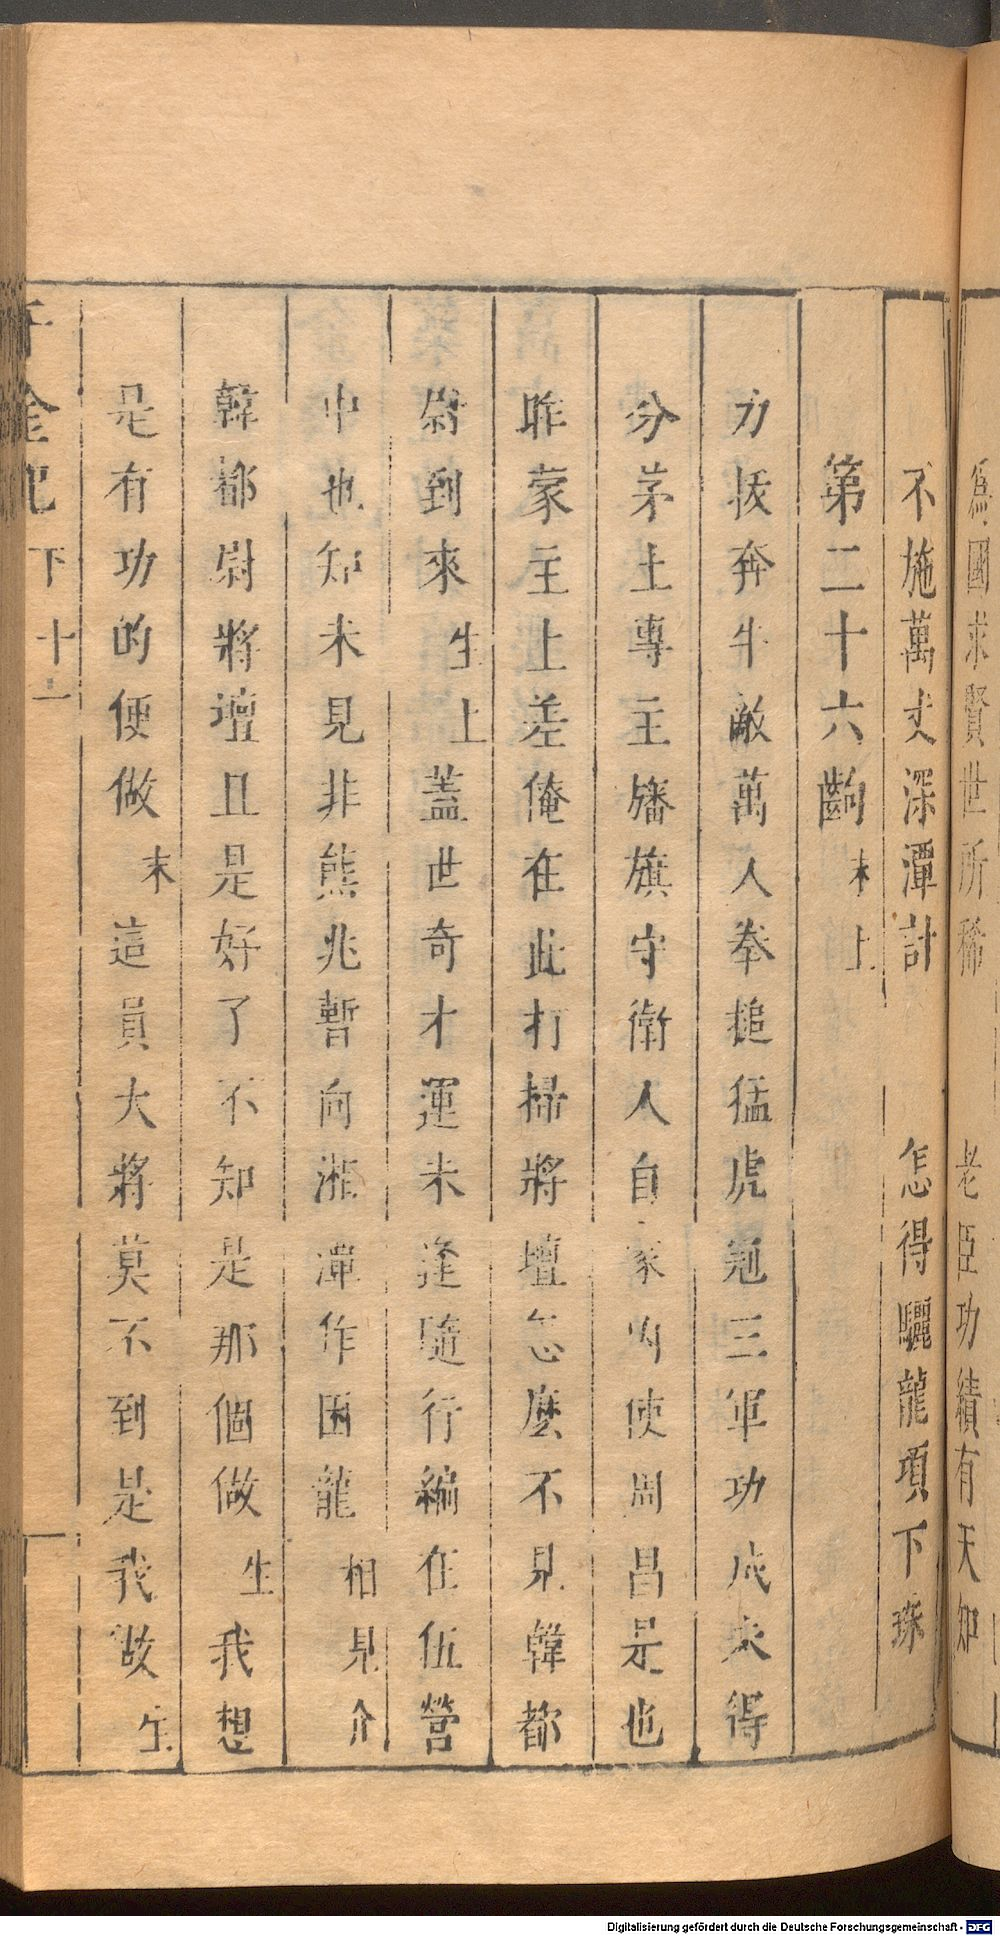 爲國求賢世所稀　老臣功績有天知
不施萬丈深潭計　怎得驪龍項下珠
第二十六齣　末上
力拔奔牛敵萬人拳搥猛虎冠三軍功成來得
分茅土專主旛旗守衛人自家內使周昌是也
昨蒙主上差俺在此打掃將壇怎麼不見韓都
尉到來　生上　蓋世奇才運未逢隨行編在伍營
中也知未見非熊兆暫向湘潭作困龍　相見介
韓都尉將壇且是好了不知是那個做　生　我想
是有功的便做　末　這員大將莫不到是我做　生
千金記　下　十二
Digitalisierung gefördert durch die Deutsche Forschungsgemeinschaft - DFG